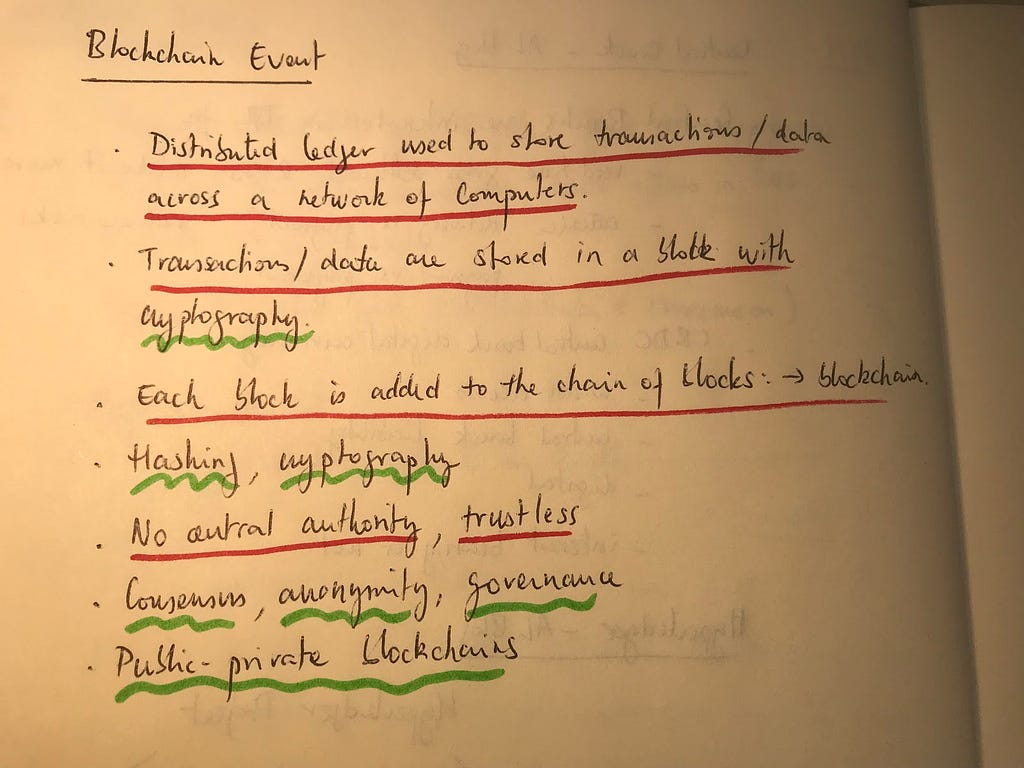 Blockchain Event
· Distributed ledger used to store transactions/data
across a network of computers.
· Transactions/data are stored in a block with
cryptography.
· Each block is added to the chain of blocks: → blockchain.
· Hashing, cryptography
· No central authority, trustless
· Consensus, anonymity, governance
· Public-private blockchains